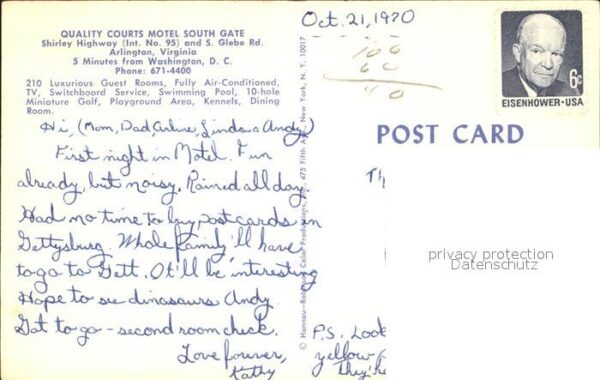 QUALITY COURTS MOTEL SOUTH GATE
Shirley Highway (Int. No. 95) and S. Glebe Rd.
Arlington, Virginia
5 Minutes from Washington, D. C.
Phone: 671-4400
210 Luxurious Guest Rooms, Fully Air-Conditioned,
TV, Switchboard Service, Swimming Pool, 10-hole
Miniature Golf, Playground Area, Kennels, Dining
Room.
Hi, (Mom, Dad, Arline, Linda & Andy)
First night in Motel. Fun
already, but noisy. Rained all day.
Had no time to buy postcards in
Gettysburg. Whole family'll have
to go to Gett. It'll be interesting
Hope to see dinasaurs Andy.
Got to go - second room check.
Love forever,
Kathy
Color Productions, Inc., 475 Fifth Ave., New York, N. Y. 10017
Oct. 21, 1970
100
60
40
6c
EISENHOWER·USA
POST CARD
Th
privacy protection
Datenschutz
P.S. Look
yellow
they're